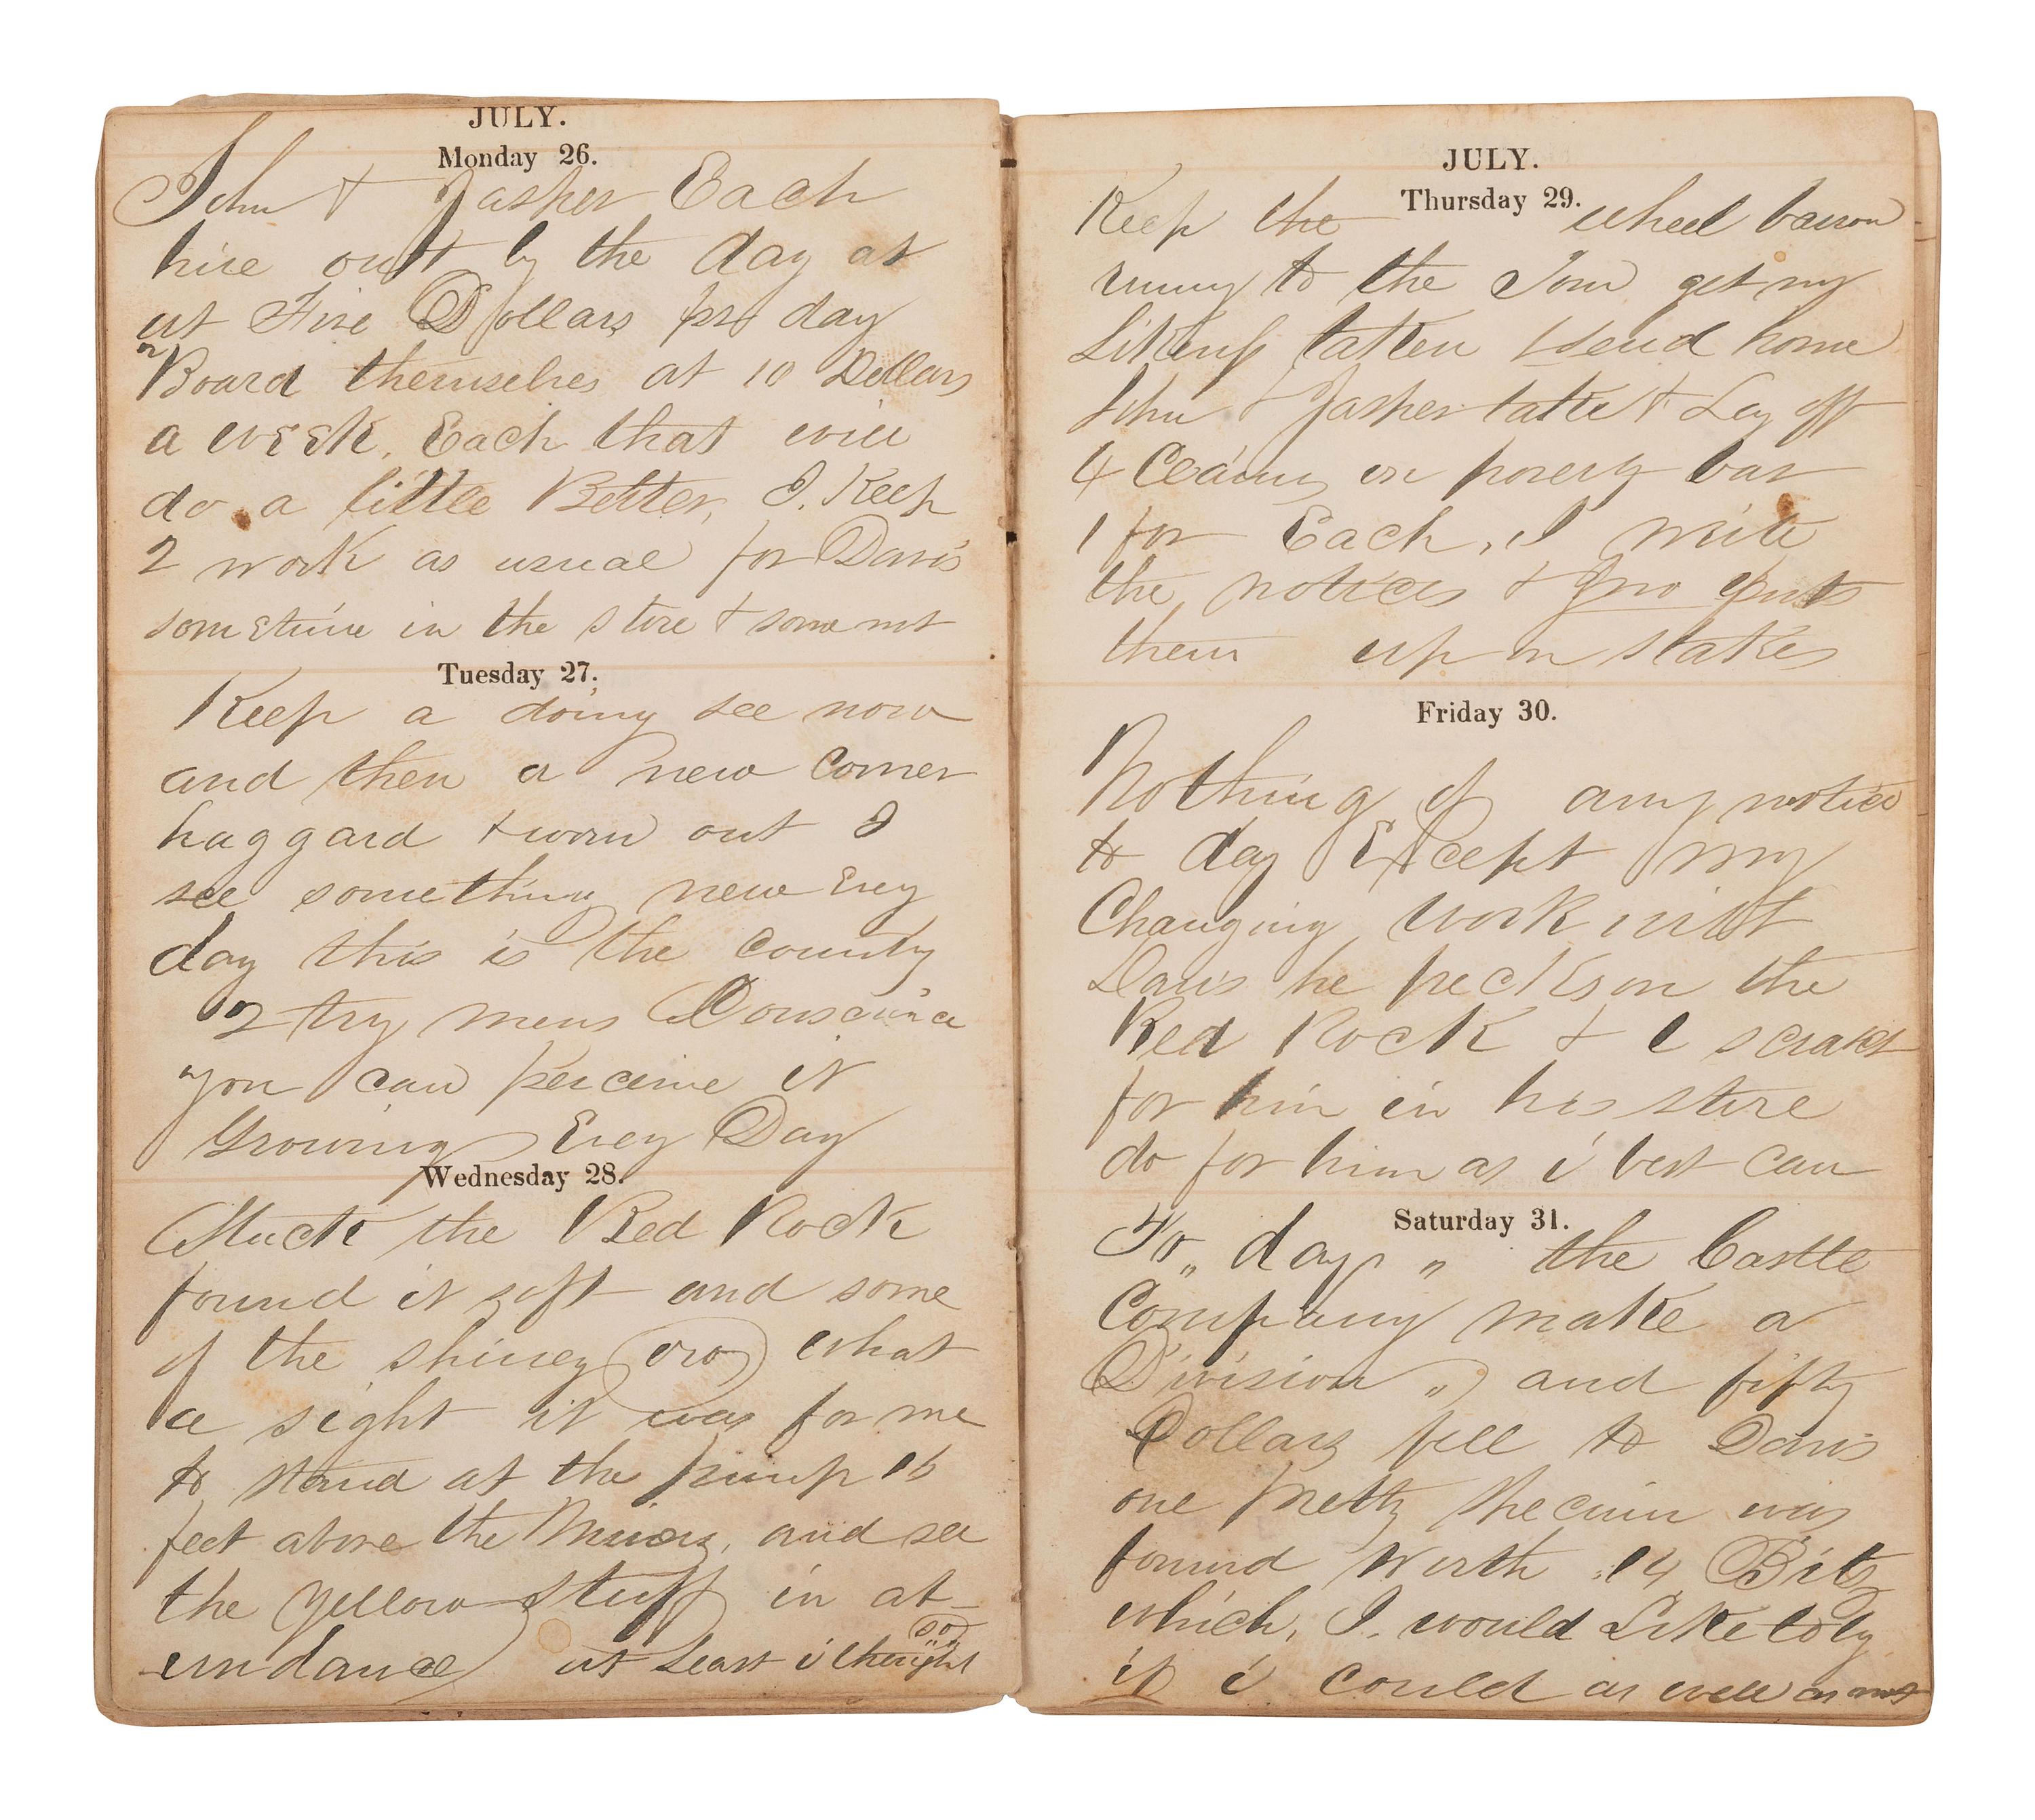 JULY.
Monday 26.
John & Jasher Each
hire outt by the day at
at Five Dollars pr day
or Board themselves at 10 Dollars
a week. Each that will
do a little Better, I. Keep
2 work as usual for Davis
sometime in the store & some not
Tuesday 27.
Keep a doing see now
and then a new comer
haggard & worn out I
see something new Evey
day this is the country
2 try mens Conscience
you can perceive it
Growing Evey Day
Wednesday 28.
Stuck the Red Rock
found it soft and some
of the shiney oro what
a sight it was for me
to stand at the pump 16
feet above the Miners, and see
the yellow stuff in at-
undance at least i thought
so
JULY.
Thursday 29.
Keep the wheel barrow
runing to the Tom get my
Likeness taken & send home
John & Jasher take & Lay off
4 Claims on povery bar
1 for Each, I write
the notices & Jno puts
them up on stakes
Friday 30.
Nothing of any notice
to day Except my
Changing work with
Davis he pecks on the
Red Rock & I
for him in his store
do for him as i best can
Saturday 31.
To „ day „ the Castle
Company make a
Division „ and fifty
Dollars fell to Davis
one pretty specimin was
found worth 14 Bits
which, I. would Like to by
if i could as well as not